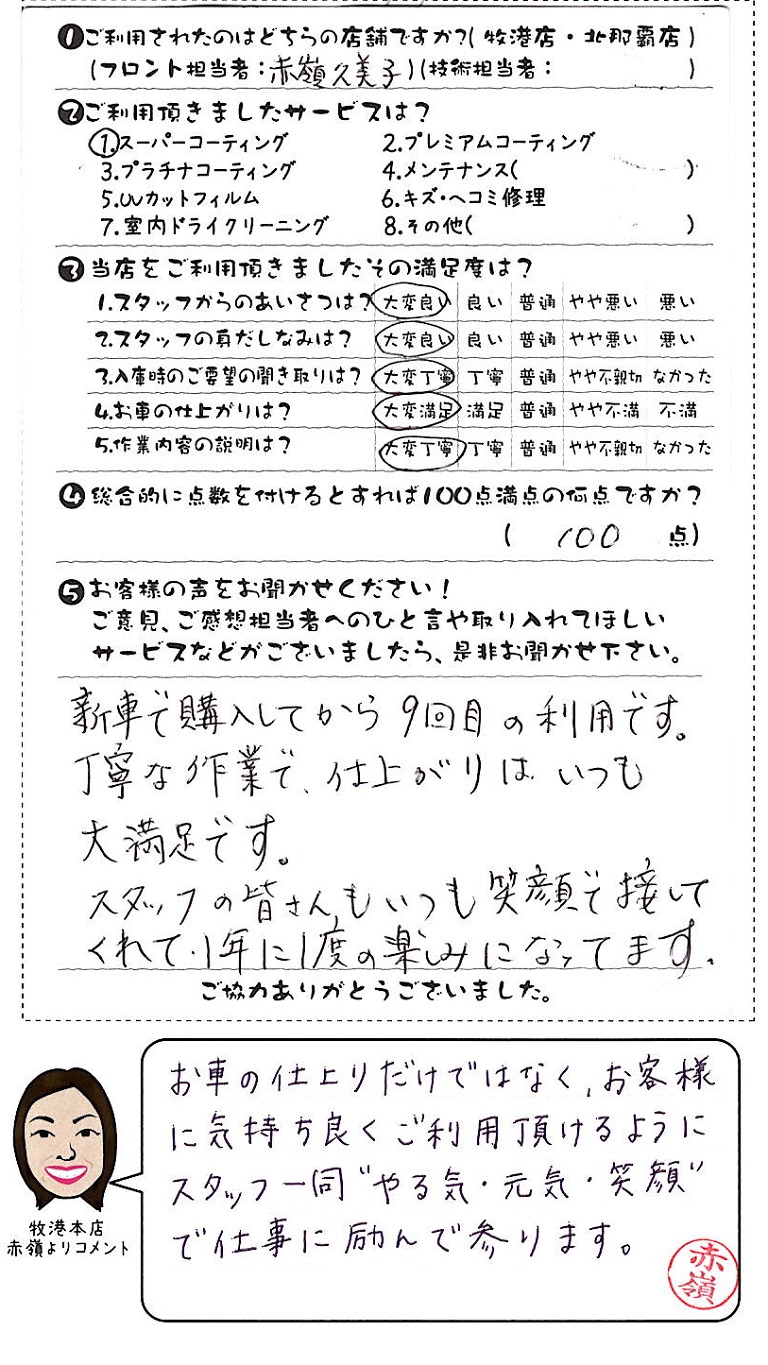 ❶ご利用されたのはどちらの店舗ですか?(牧港店・北那覇店)
(フロント担当者:赤嶺久美子)(技術担当者: )
❷ご利用頂きましたサービスは?
1.スーパーコーティング 2.プレミアムコーティング
3.プラチナコーティング 4.メンテナンス( )
5.UVカットフィルム 6.キズ・ヘコミ修理
7.室内ドライクリーニング 8.その他( )
❸当店をご利用頂きましたその満足度は?
1.スタッフからのあいさつは? 大変良い 良い 普通 やや悪い 悪い
2.スタッフの身だしなみは? 大変良い 良い 普通 やや悪い 悪い
3.入庫時のご要望の聞き取りは? 大変丁寧 丁寧 普通 やや不親切 なかった
4.お車の仕上がりは? 大変満足 満足 普通 やや不満 不満
5.作業内容の説明は? 大変丁寧 丁寧 普通 やや不親切 なかった
❹総合的に点数を付けるとすれば100点満点の何点ですか?
( 100 点)
❺お客様の声をお聞かせください!
ご意見、ご感想担当者へのひと言や取り入れてほしい
サービスなどがございましたら、是非お聞かせ下さい。
新車で購入してから9回目の利用です。
丁寧な作業で、仕上がりは いつも
大満足です。
スタッフの皆さんもいつも笑顔で接して
くれて、1年に1度の楽しみになってます。
ご協力ありがとうございました。
お車の仕上りだけではなく、お客様
に気持ち良くご利用頂けるように
スタッフ一同"やる気・元気・笑顔"
で仕事に励んで参ります。
赤嶺
牧港本店
赤嶺よりコメント